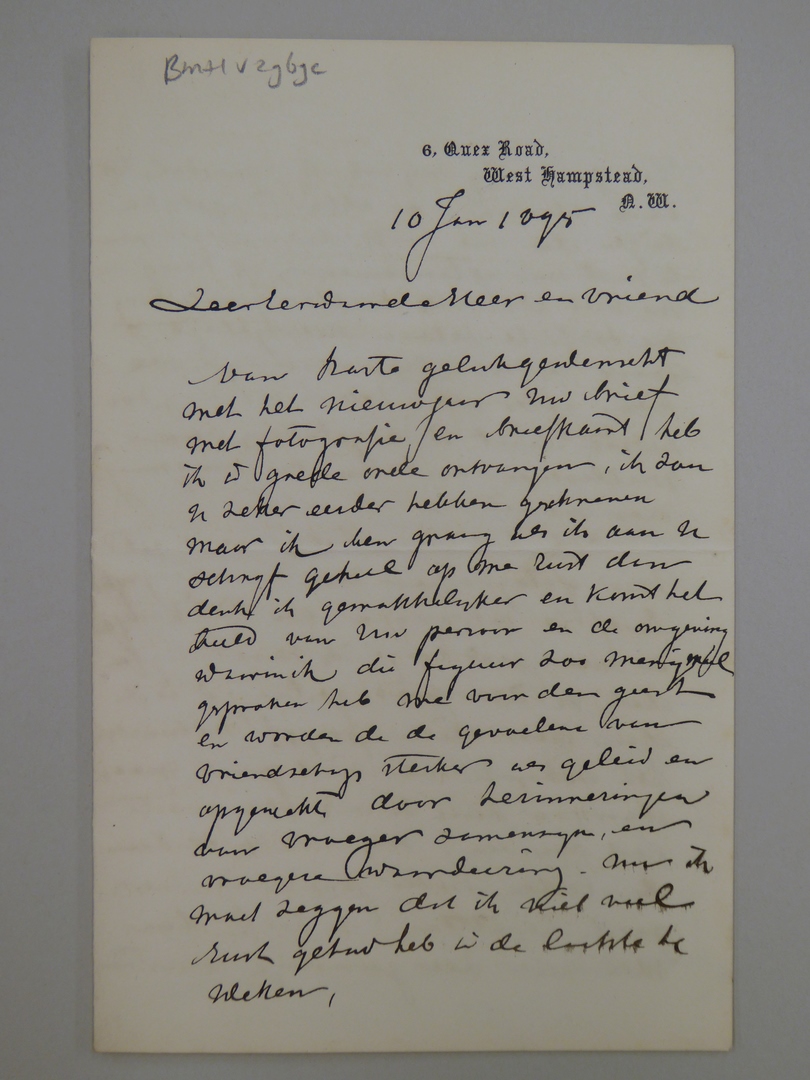 6, Quex Road,
West Hampstead,
N.W.
10 Jan 1895
Zeer Eerwaarde Heer en vriend
Van harte gelukgewenscht
met het nieuwjaar uw brief
met fotografie, en briefkaart heb
ik in goede orde ontvangen, ik zou
u zeker eerder hebben geschreven
maar ik ben graag als ik aan u
schryf geheel op me rust dan
denk ik gemakkelyker en komt het
beeld van uw persoon en de omgeving
waarin ik die figuur zoo menigmaal
gesproken heb me voor den geest
en worden de de gevoelens van
vriendschap sterker als geleid en
opgewekt door herinneringen
van vroeger samenzyn, en
vroegere waardeering. Nu ik
moet zeggen dat ik niet veel
rust gehad heb in de laatste
weken,